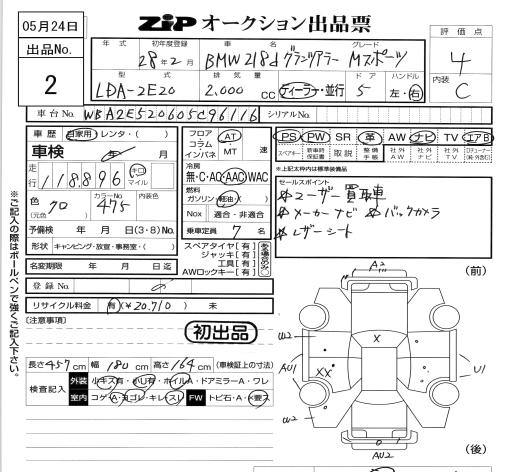 05月24日
ZIP オークション出品票
出品No.
2
年式 初年度登録 車名 グレード
28年2月 BMW218d グランツアラー Mスポーツ
型式 排気量 ドア ハンドル
LDA-2E20 2,000 CC ディーラー・並行 5 左・右
評価点
4
内装
C
車台No. WBA2E520605C96116 シリアルNo.
車歴 自家用・レンタ・( )
車検 年 月
走行 118,896 キロ マイル
色 (元色) カラーNo. 475 内装色
予備検 年 月 日(3・8)No.
形状 キャンピング・放宣・事務室・( )
名変期限 年 月 日迄
登録No.
リサイクル料金 有(¥20,710) 未
フロア コラム インパネ AT・MT 速
冷房
無・C・AC・AAC・WAC
燃料
ガソリン・軽油・( )
Nox 適合・非適合
乗車定員 7 名
スペアタイヤ[有]
ジャッキ[有]
工具[有]
AWロックキー[有]
PS PW SR 革 AW ナビ TV エアB
スペアキー 新車時保証書 取説 整備手帳 社外AW 社外ナビ 社外TV
※上記太枠内は標準装備品
セールスポイント
※ユーザー買取車
※メーカーナビ ※バックカメラ
※レザーシート
※ご記入の際はボールペンで強くご記入下さい。
(注意事項)
初出品
長さ457cm 幅180cm 高さ164cm (車検証上の寸法)
検査記入 外装 小キズ有・小凹有・ホイルA・ドアミラーA・ワレ
室内 コゲA・ヨゴレ・キレ・スレ FW トビ石・A・X要ス
(前)
A2
U2
X
AU1
XX
U1
U2
AU2
(後)